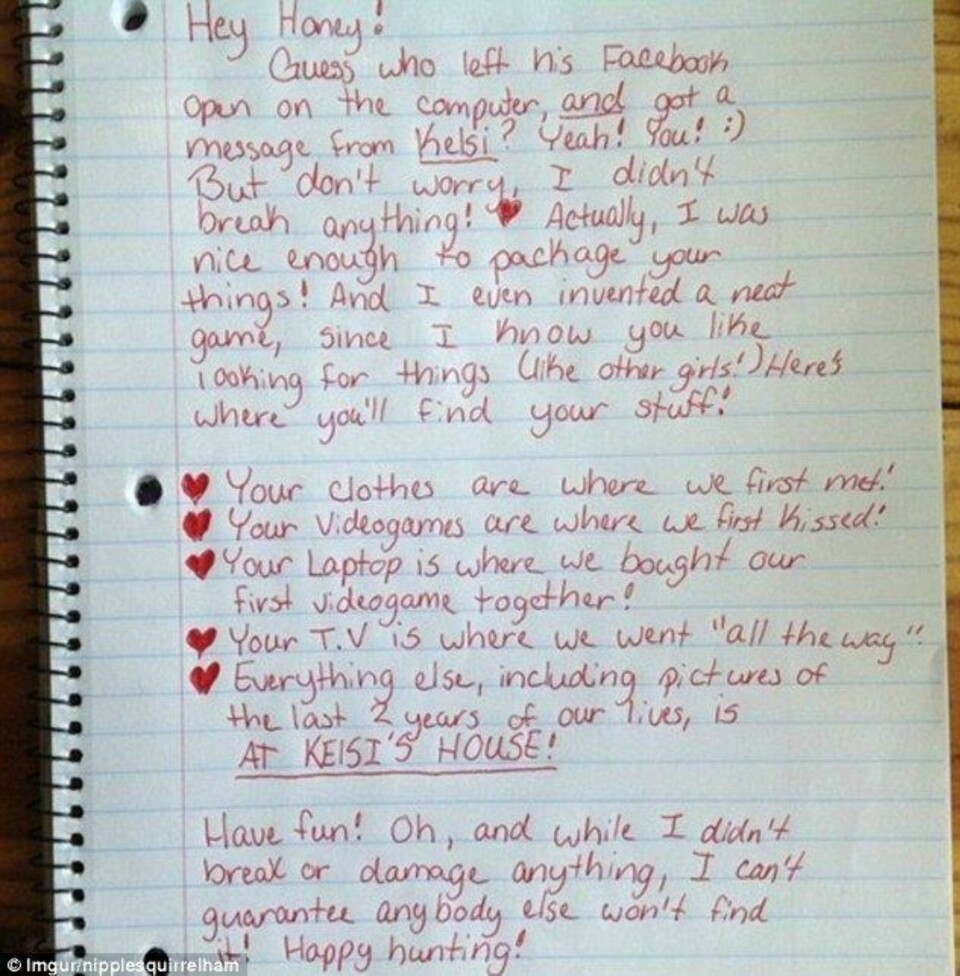 Hey Honey!
Guess who left his Facebook
open on the computer, and got a
message from Kelsi? Yeah! You! :)
But don't worry, I didn't
break anything! ♥ Actually, I was
nice enough to package your
things! And I even invented a neat
game, since I know you like
looking for things (like other girls!) Here's
where you'll find your stuff!
♥ Your clothes are where we first met!
♥ Your Videogames are where we first kissed!
♥ Your Laptop is where we bought our
first videogame together!
♥ Your T.V is where we went "all the way"!
♥ Everything else, including pictures of
the last 2 years of our lives, is
AT KELSI'S HOUSE!
Have fun! Oh, and while I didn't
break or damage anything, I can't
guarantee anybody else won't find
it! Happy hunting!
© Imgur/nipplesquirrelham